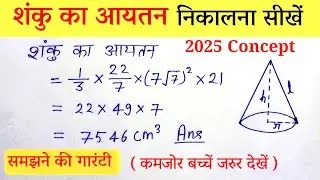 शंकु का आयतन निकालना सीखें
शंकु का आयतन
2025 Concept
= 1/3 × 22/7 × (7√7)² × 21
= 22 × 49 × 7
= 7546 cm³ Ans
h
l
r
समझने की गारंटी
( कमजोर बच्चें जरुर देखें )